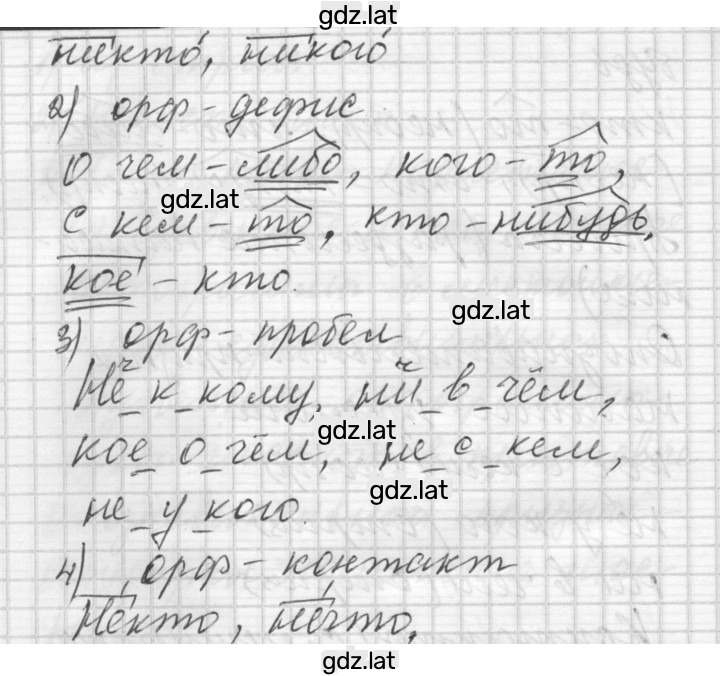 gdz.lat
никто, никого
2) орф-дефис
о чем-либо, кого-то,
gdz.lat
с кем-то, кто-нибудь,
кое-кто.
gdz.lat
3) орф-пробел
Не к кому, ни в чём,
gdz.lat
кое о чём, не с кем,
gdz.lat
не у кого.
4) орф-контакт
Некто, нечто.
gdz.lat